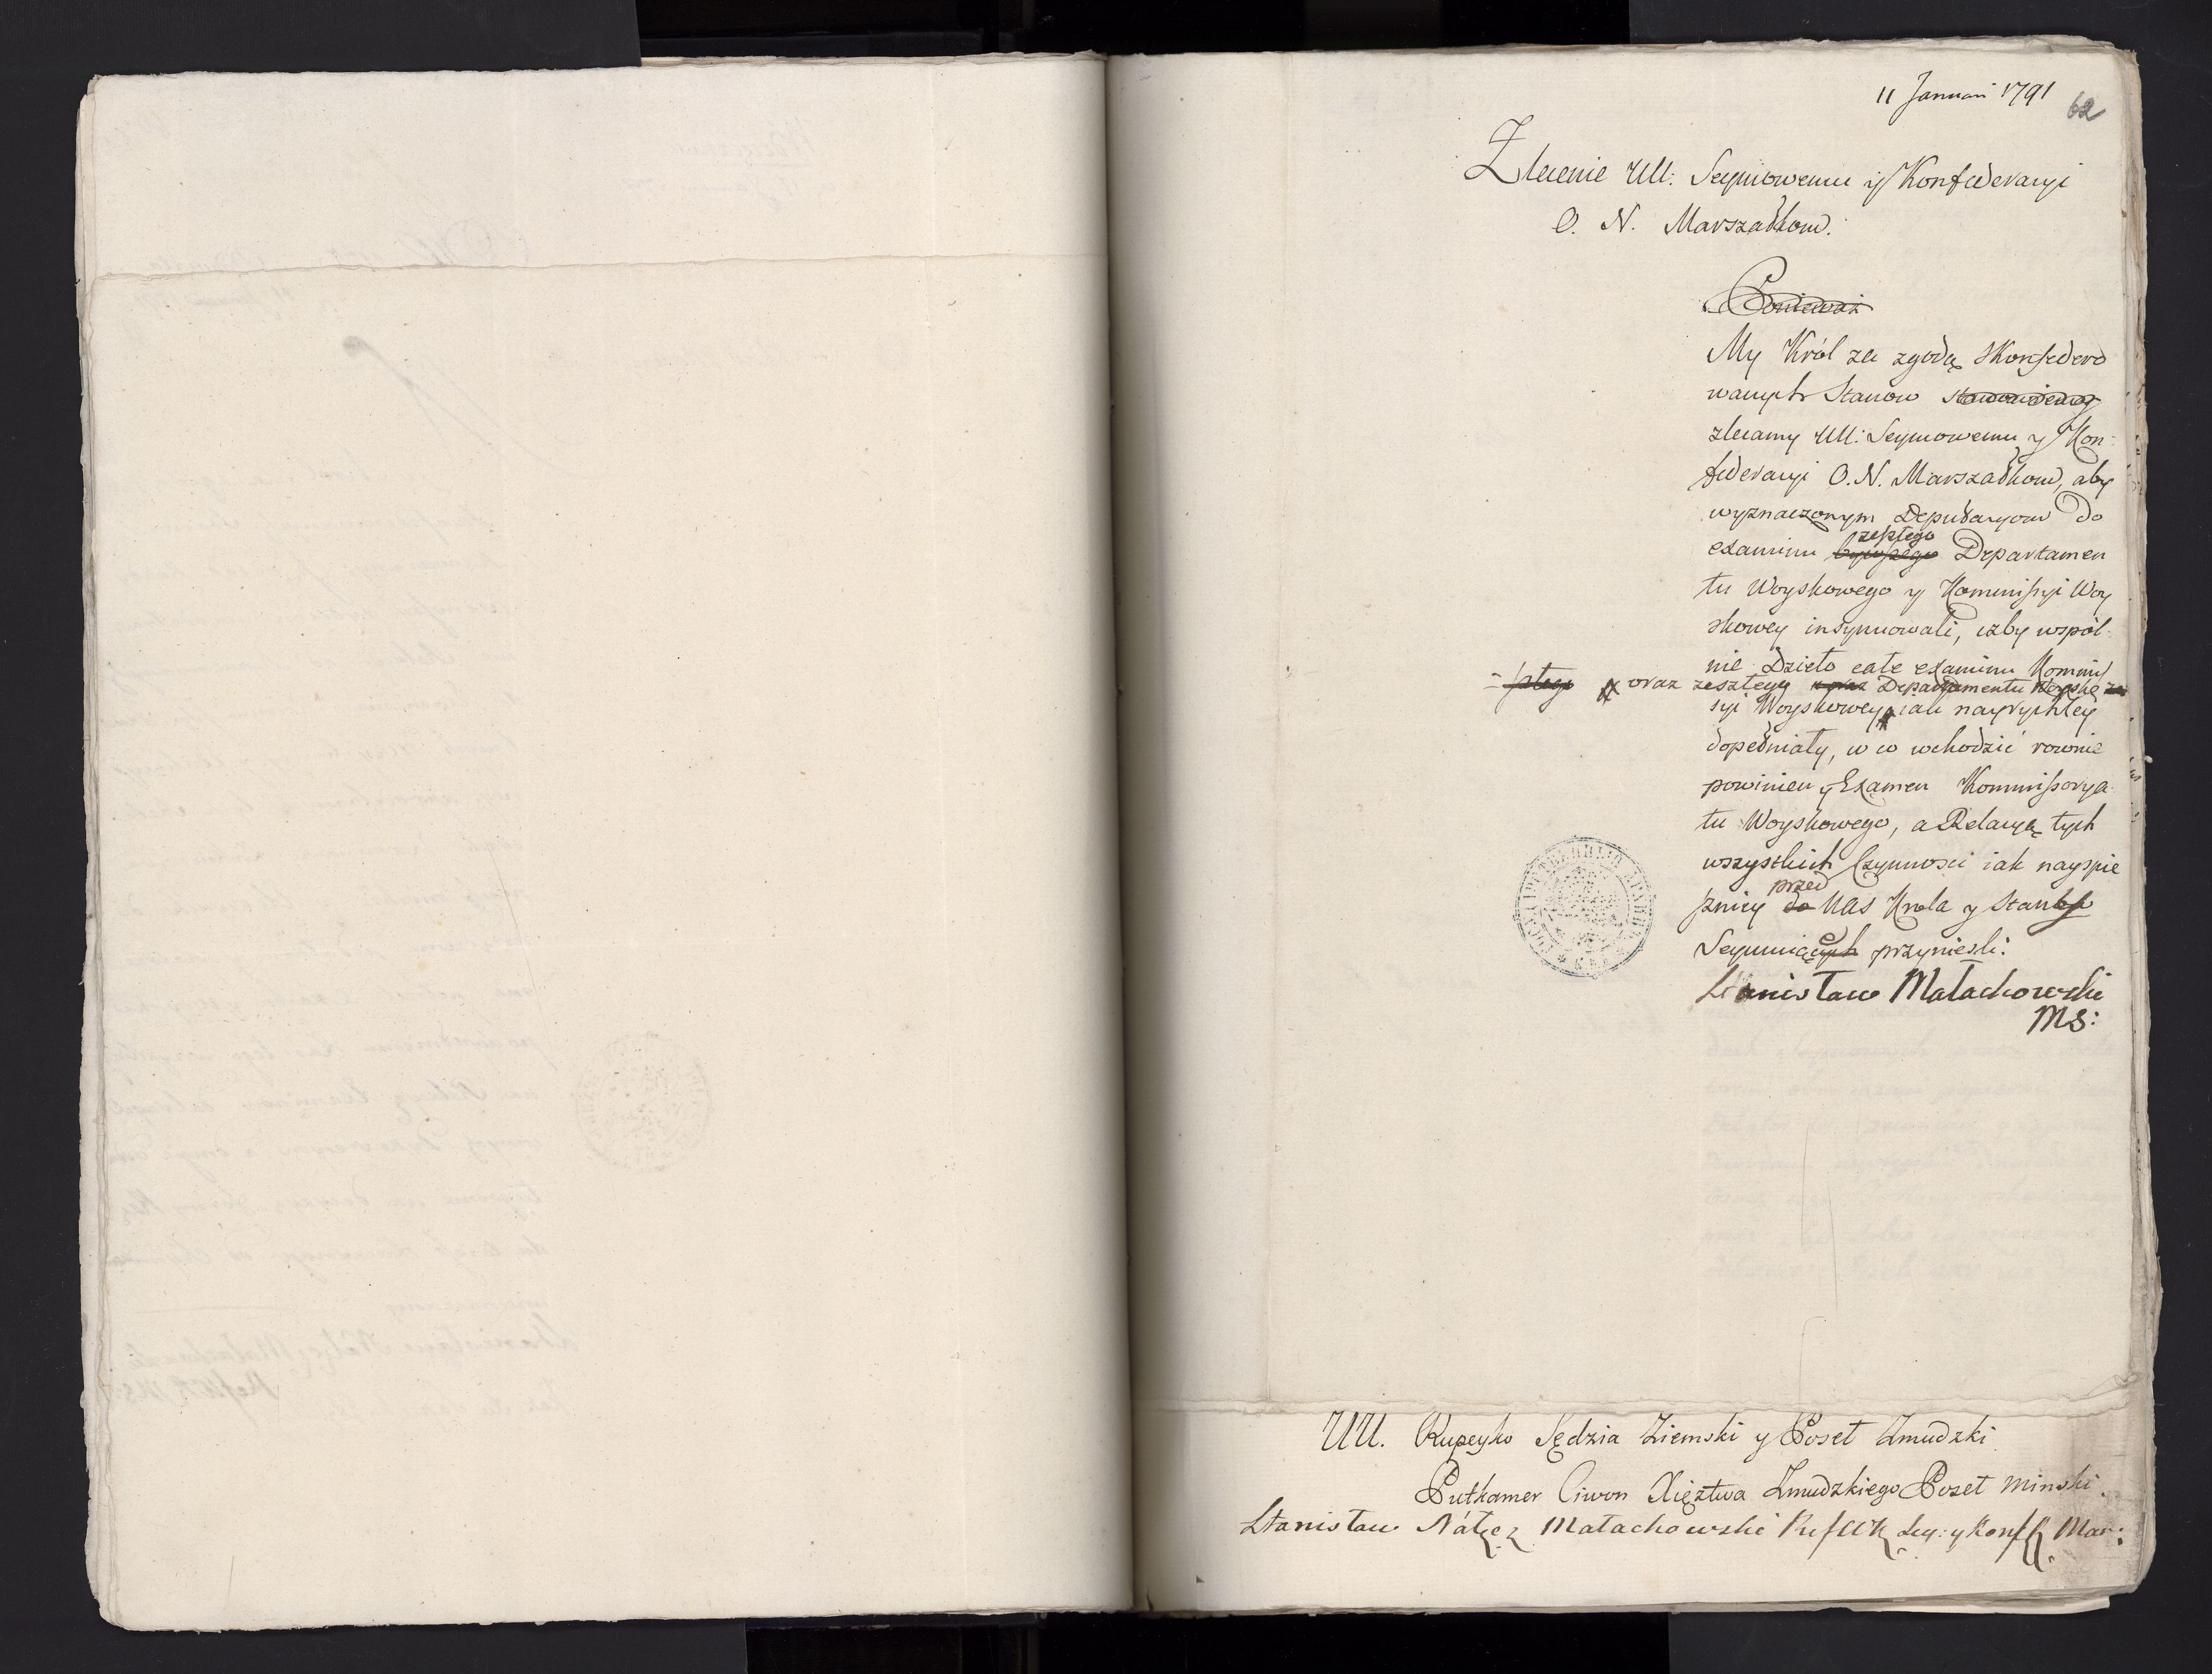 11 Januari 1791
62
Zlecenie UU: Seymowemu y Konfederacyi
O. N. Marszałkow.
Ponieważ
My Król za zgodą skonfedero
wanych Stanow stanowiemy
zlecamy UU: Seymowemu y Kon-
federacyi O. N. Marszałkow, aby
wyznaczonym Deputacyom do
zeszłego
examinu bywszego Departamen
tu Woyskowego y Kommissyi Woy
skowey insynuowali, iżby wspól-
nie Dzieło całe examinu Kommis
oraz zeszłego Departamentu
syi Woyskowey iak nayrychley
dopełniały, w co wchodzić rownie
powinien y Examen Kommissorya
tu Woyskowego, a Relacyą tych
wszystkich Czynnosci iak nayspie
przed
szniey do Nas Krola y Stanow
Seymuiących przyniesli:
Stanisław Małachowski
MS:
UU. Rupeyko Sędzia Ziemski y Poseł Żmudzki
Putkamer Ciwon Xięztwa Żmudzkiego Poseł Minski.
Stanisław Nałęcz Małachowski Ref WK Sey: y Konf Mar: